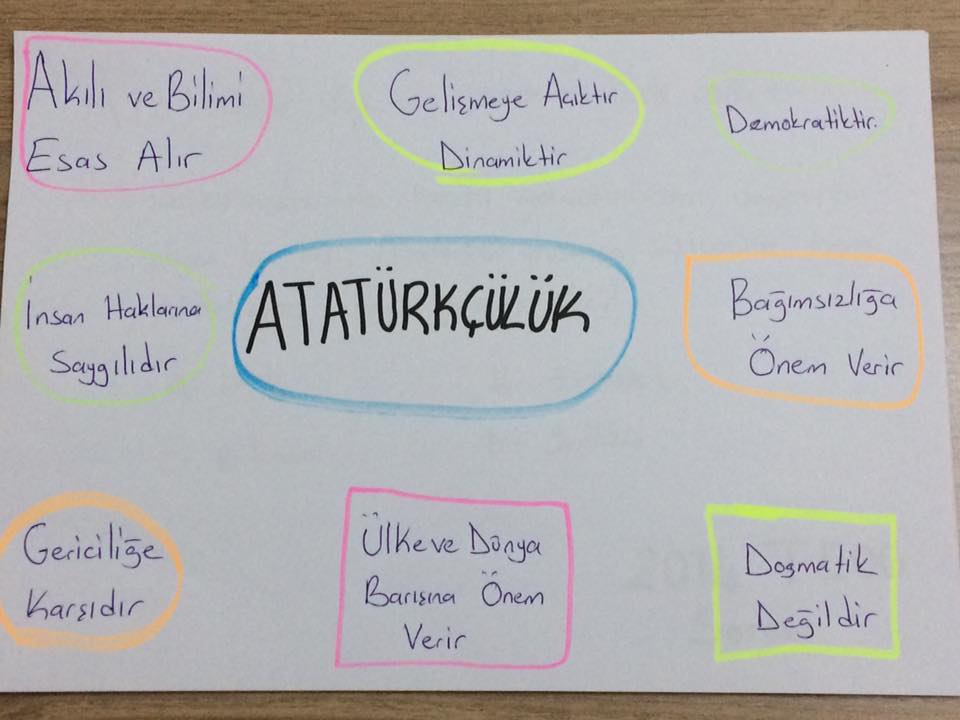 Akılı ve Bilimi
Esas Alır
Gelişmeye Açıktır
Dinamiktir
Demokratiktir.
İnsan Haklarına
Saygılıdır
ATATÜRKÇÜLÜK
Bağımsızlığa
Önem Verir
Gericiliğe
Karşıdır
Ülke ve Dünya
Barışına Önem
Verir
Dogmatik
Değildir